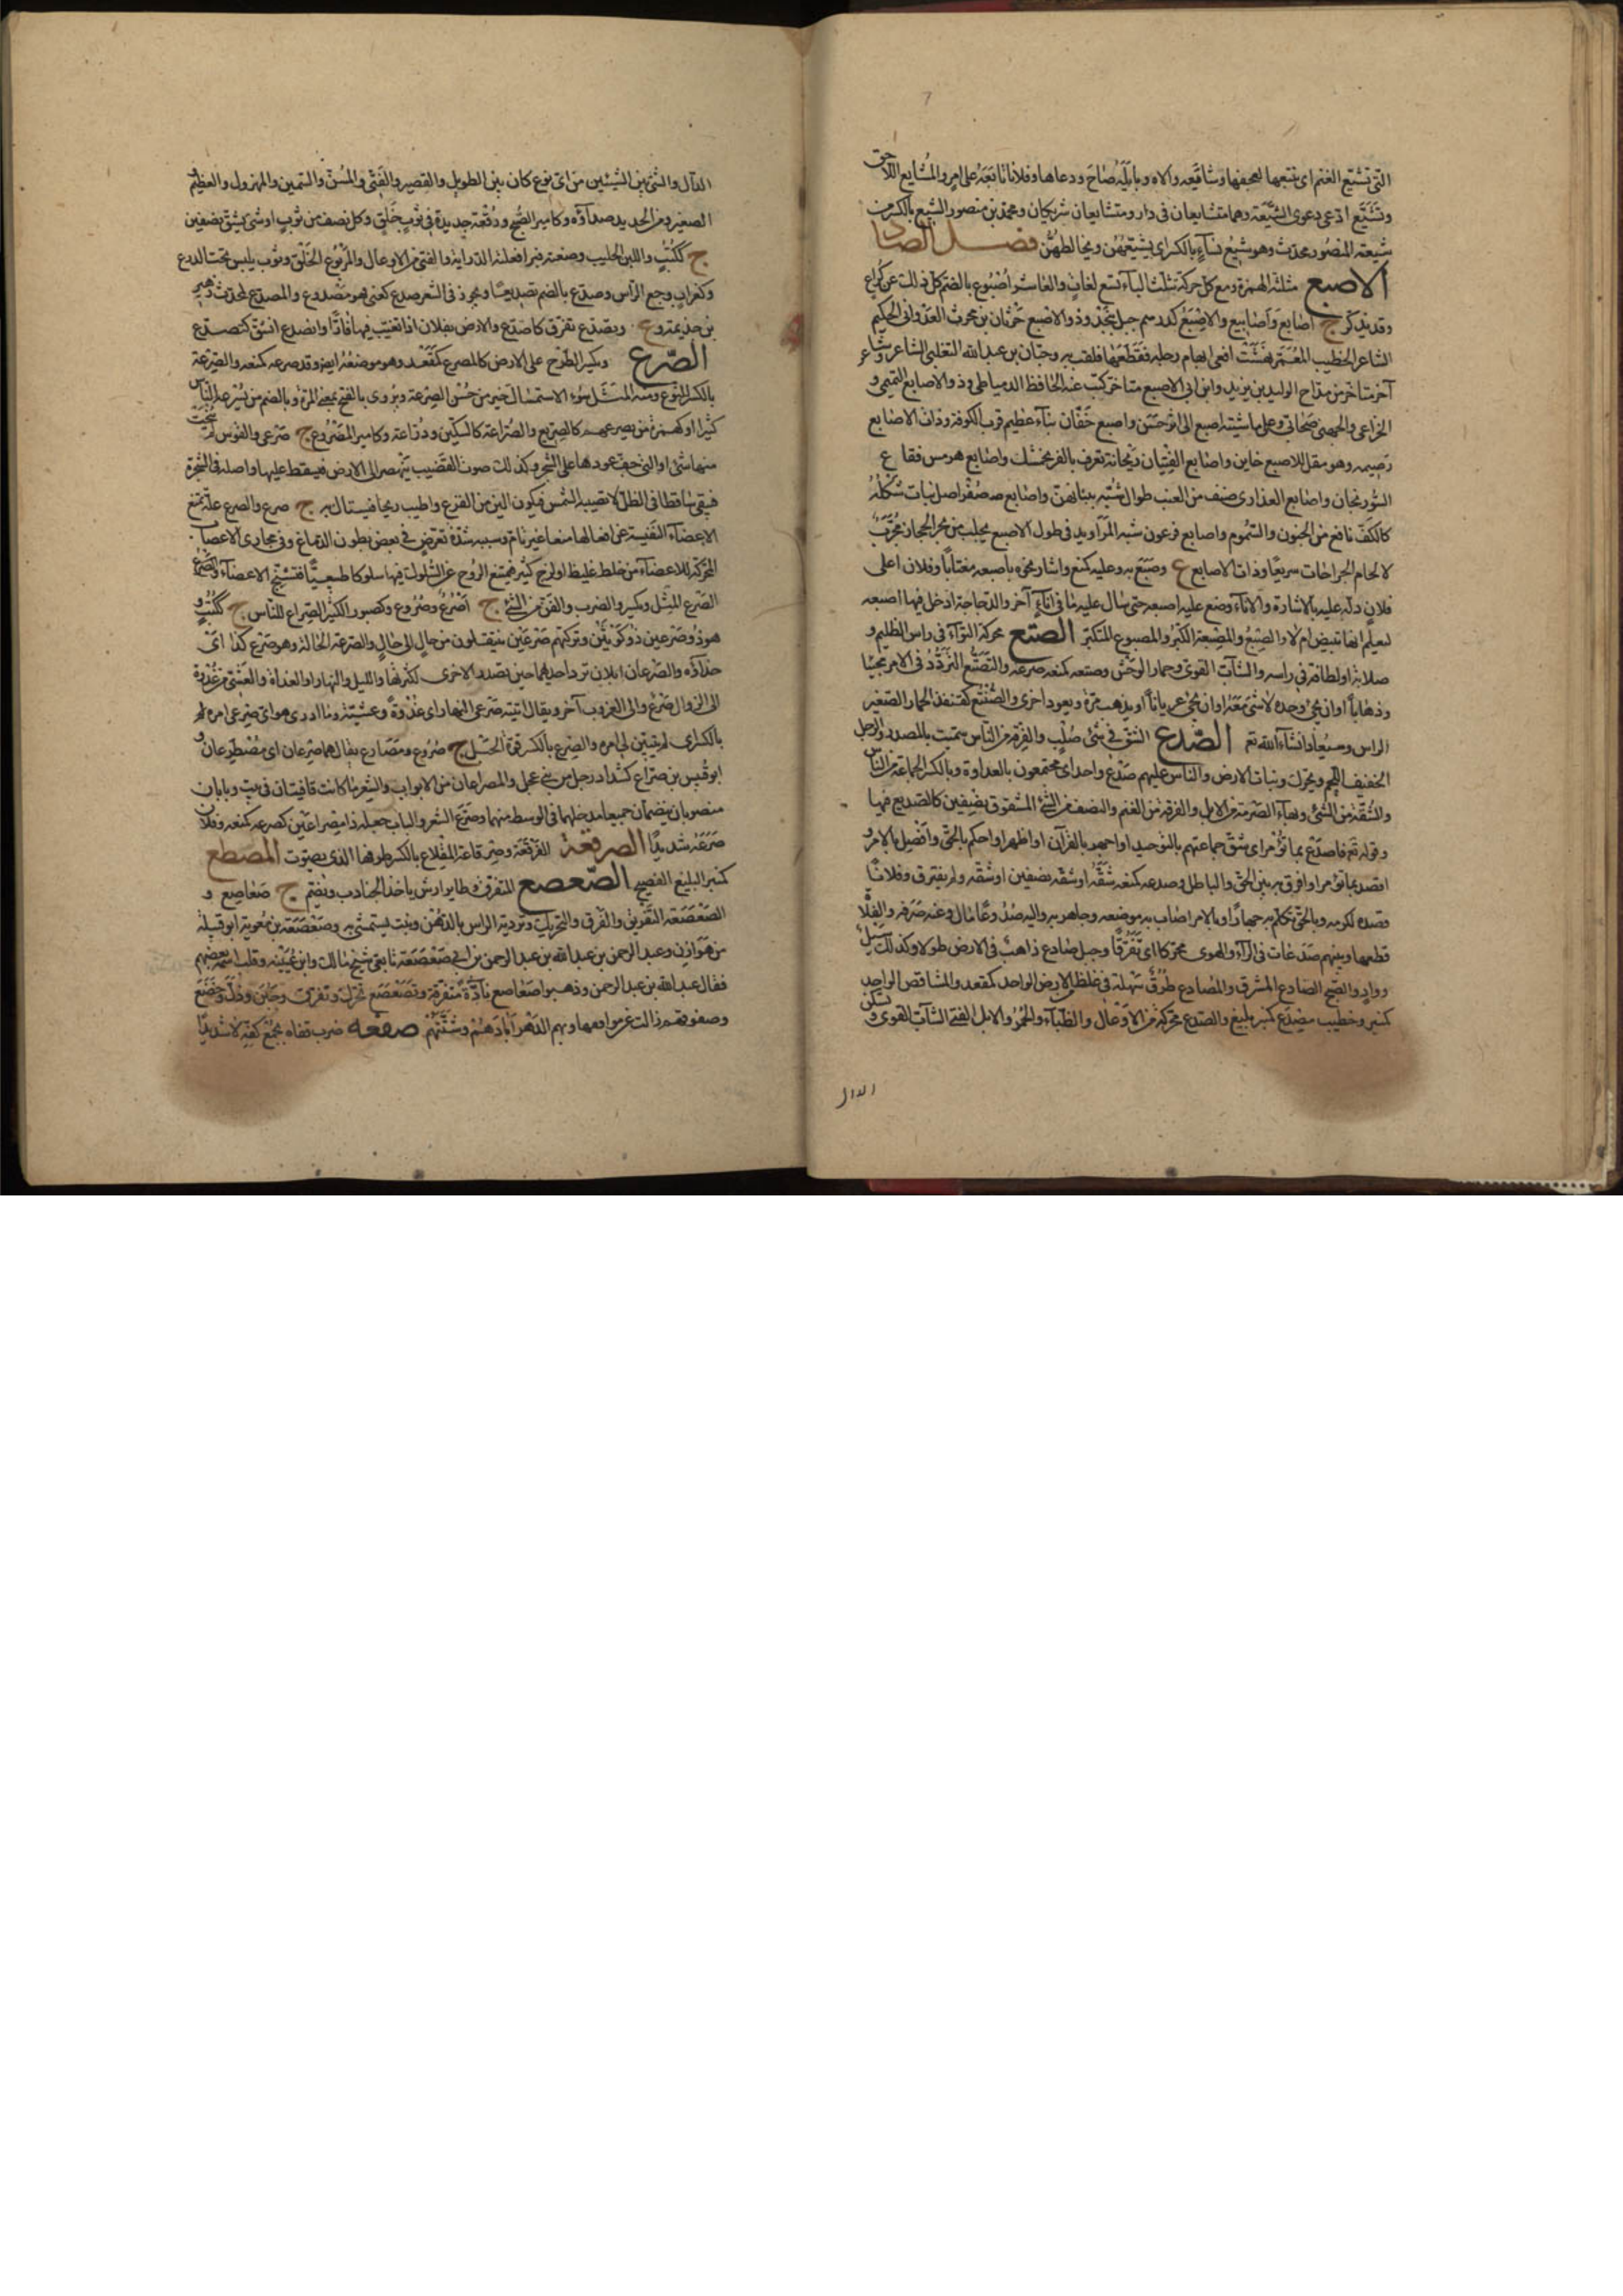 التى تشيّع الغنم اى يتبعها لجعفها وشايعه والاه وبابله صاح ودعاها وفلانا تابعه على امر والمشايع اللاحق
وتشيّع ادّعى دعوى الشيعة وهما متشايعان فى دار ومتشايعان شريكان ومحمد بن منصور الشيعى بالكسر من
شيعة المنصور محدث وهو شيع نساء بالكسر اى يشيعهن ويخالطهن فصل الصاد
الاصبع مثلثة الهمزة ومع كل حركة تثلث الباء تسع لغات والعاشر اصبوع بالضم كل ذلك عن كراع
وقد يذكر ج اصابع واصابيع والاصبع كدرهم جبل بنجد وذو الاصبع حرثان بن محرث العدوانى الحكيم
الشاعر الخطيب المعمّر نهشت افعى ابهام رجله فقطعها فلقب به وحبان بن عبد الله التغلبى الشاعر وشاعر
آخر متاخر من مدّاح الوليد بن يزيد وابن ابى الاصبع متاخر كتب عنه الحافظ الدمياطى وذو الاصابع التميمى و
الخزاعى والجهنى صحابى وعلى ماشيته اصبع اى اثر حسن واصبع خفان بناء عظيم قرب الكوفة وذات الاصابع
رضيمة وهو مغل الاصبع خاين واصابع الفتيان ريحانة تعرف بالفرنجمشك واصابع هرمس فقاع
السورنجان واصابع العذارى صنف من العنب طوال شبّه ببنانهن واصابع صفر اصل نبات شكله
كالكف نافع من الجنون والسموم واصابع فرعون شبه المراويد فى طول الاصبع يجلب من بحر الحجاز مجرّب
لالحام الجراحات سريعا وذات الاصابع ع وصبع به وعليه كمنع واشار نحوه باصبعه مغتابا وفلان اعلى
فلان دلّه عليه بالاشارة والاناء وضع عليه اصبعه حتى سال عليه ما فى اناء آخر والدجاجة ادخل فيها اصبعه
ليعلم انها تبيض ام لا والصبع والمصبعة الكبر والمصبوع المتكبر الصتع محركة التواء فى راس الظليم و
صلابة او لطافة فى راسه والشاب القوى وحمار الوحش وصتعه كمنعه صرعه والتصتع التردد فى الامر مجيئا
وذهابا او ان يجئ وحده لا شئ معه او ان يجئ عريانا او يذهب مرة ويعود اخرى والصنتع كقنفذ الحمار الصغير
الراس وسيعاد انشاء الله تع الصدع الشق فى شئ صلب والفرقة من الناس سميت بالمصدر والرجل
الخفيف اللحم ويحرك ونبات الارض والناس عليهم صدع واحد اى مجتمعون بالعداوة وبالكسر الجماعة من الناس
والشقة من الشئ وبهاء الصرمة من الابل والفرقة من الغنم والنصف من الشئ المشقوق نصفين كالصديع فيها
وقوله تع فاصدع بما تؤمر اى شق جماعتهم بالتوحيد او اجهر بالقرآن او اظهر او احكم بالحق وافصل بالامر و
اقصد بما تؤمر او افرق به بين الحق والباطل وصدعه كمنعه شقه او شقه نصفين او شقه ولم يفترق وفلانا
قصده لكرمه وبالحق تكلم به جهارا وبالامر اصاب به موضعه وجاهر به واليه صدوعا مال وعنه صرفه والفلاة
قطعها وبينهم صدعات فى الراء والهوى محركة اى تفرقا وجبل صادع ذاهب فى الارض طولا وكذلك سيل
وواد والصبح الصادع المشرق والمصادع طرق سهلة فى غلظ الارض الواحد كمقعد والمشاقص الواحد
كمنبر وخطيب مصدع كمنبر بليغ والصدع محركة من الاوعال والظباء والحمر والابل الفتى الشاب القوى وتسكن
الدال
الدال والشئ بين الشيئين من اى نوع كان بين الطويل والقصير والفتى والمسن والسمين والمهزول والعظيم و
الصغير ومن الحديد صداؤه وكامير الصبح ورقعة جديدة فى ثوب خلق وكل نصف من ثوب او شئ يشق نصفين
ج ككتب واللبن الحليب وضعته فبرد فعلته الدواية والفتى من الاوعال والمرقوع الخلق وثوب يلبس تحت الدرع
وكغراب وجع الراس وصدع بالضم تصديعا ويجوز فى الشعر صدع كعنى فهو مصدوع والمصدع كمحدث زهير
بن جذيمة وع وتصدع تفرق كاصدع والارض بفلان اذا تغيب فيها فارّا وانصدع انشق كتصدع
الصرع ويكسر الطرح على الارض كالمصرع كمقعد وهو موضعه ايضا وقد صرعه كمنعه والصرعة
بالكسر النوع ومنه المثل سوء الاستمساك خير من حسن الصرعة ويروى بالفتح بمعنى المرة وبالضم من يصرعه الناس
كثيرا وكهمزة من يصرعهم كالصريع والصراعة كالسكين ودراعة وكامير المصروع ج صرعى والقوس لم ينحت
منها شئ او التى جف عودها على الشجر وكذلك صوت القضيب ينهصر الى الارض فيسقط عليها واصله فى الشجرة
فيبقى ساقطا فى الظل لا تصيبه الشمس فيكون الين من الفرع واطيب ريحا فيستاك به ج صرع والصرع علة تمنع
الاعضاء النفيسة عن افعالها منعا غير تام وسببه شدة تعرض فى بعض بطون الدماغ وفى مجارى الاعصاب
المحركة للاعضاء من خلط غليظ او لزج كثير فتمتنع الروح عن السلوك فيها سلوكا طبيعيا فتشنج الاعضاء والصرع
الصرع المثل ويكسر والضرب والفن من الشئ ج اصرع وصروع وكصبور الكثير الصراع للناس ج ككتب و
هو ذو صرعين ذو لونين وتركتهم صرعين ينتقلون من حال الى حال والصرعة الحالة وهو صرع كذا اى
حذاؤه والصرعان ابلان ترد احديهما حين تصدر الاخرى لكثرتها والليل والنهار او الغداة والعشى من غدوة
الى الزوال صرع والى الغروب آخر ويقال اتيته صرعى النهار اى غدوة وعشية وما ادرى هو اى صرعى امره هو
بالكسر اى لم يتبين لى امره والصرع بالكسر قوة الحبل ج صروع ومصارع يقال هما صرعان اى مصطرعان و
ابو قيس بن صراع كشداد رجل من بنى عجل والمصراعان من الابواب والشعر ما كانت قافيتان فى بيت وبابان
منصوبان ينضمان جميعا مدخلهما فى الوسط منهما وصرع الشعر والباب جعله ذا مصراعين كصرعه كمنعه وفلانا
صرعه شديدا الصرقعة الفرقعة وصرقاعة المقلاع بالكسر طرفها الذى يصوت المصطع
كمنبر البليغ الفصيح الصعصع المتفرق وطاير ارش ياخذ الجنادب ويضم ج صعاصع و
الصعصعة التفريق والفرق والتحريك وتروية الراس بالدهن ونبت يستمشى به وصعصعة بن معوية ابو قبيلة
من هوازن وعبد الرحمن بن عبد الله بن عبد الرحمن بن ابى صعصعة تابعى شيخ مالك وابن عيينة وقلب اسمه بعضهم
فقال عبد الله بن عبد الرحمن وذهبوا صعاصع نادة متفرقة وتصعصع تحرك وتفرق وجبن وذل وخضع
وصفوفهم زالت عن مواقعها وبهم الدهر ابادهم وشتتهم صفعه ضرب قفاه بجمع كفه لا شديدا